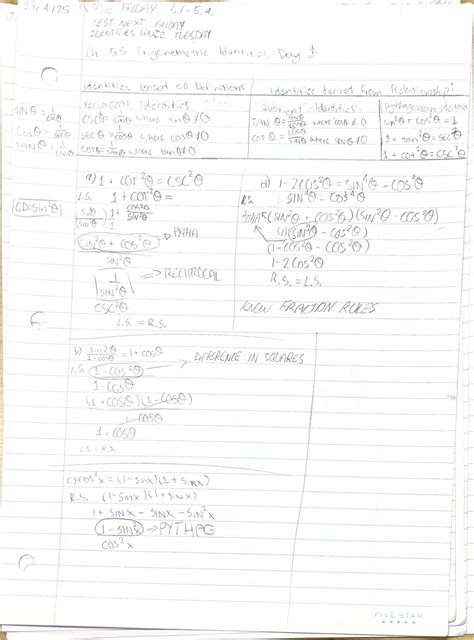 23/4/25 FRIDAY 5.1-5.4.
TEST NEXT FRIDAY
IDENTITIES QUIZ TUESDAY
Ch 5.5 Trigonometric Identities Day 1
Identities Based on Definitions
Identities derived from Relationships
Reciprocal Identities
Quotient Identities:
Pythagorean Identities
SINθ = 1/cscθ
COSθ = 1/secθ
TANθ = 1/cotθ
CSCθ = 1/sinθ where sinθ≠0
SECθ = 1/cosθ where cosθ≠0
COTθ = 1/tanθ where tanθ≠0
TANθ = sinθ/cosθ where cosθ≠0
COTθ = cosθ/sinθ where sinθ≠0
sin²θ + cos²θ = 1
1 + tan²θ = sec²θ
1 + cot²θ = CSC²θ
a) 1 + COT²θ = CSC²θ
L.S. 1 + COT²θ =
CD=sin²θ
sin²θ/sin²θ 1 + cos²θ/sin²θ
sin²θ + cos²θ → PYTHA
sin²θ
1/sin²θ → RECIPROCAL
CSC²θ
L.S. = R.S.
d) 1-2cos²θ = SIN⁴θ - COS⁴θ
R.S. SIN⁴θ - COS⁴θ
PYTHA (sin²θ + cos²θ)(sin²θ - cos²θ)
(1)(sin²θ - cos²θ)
(1-cos²θ - cos²θ)
1-2cos²θ
R.S. = L.S.
KNOW FRACTION RULES
b) sin²θ/1-cosθ = 1+cosθ
L.S. 1-cos²θ → DIFERENCE IN SQUARES
1-cosθ
(1+cosθ)(1-cosθ)
1-cosθ
1+cosθ
L.S = R.S.
c) cos²x = (1-sinx)(1+sinx)
R.S. (1-sinx)(1+sinx)
1 + sinx - sinx - sin²x
1-sin²x → PYTHAG
cos²x
FIVE STAR